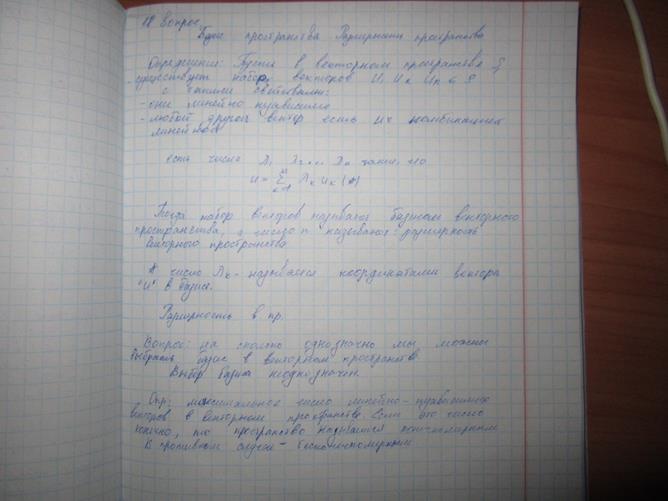 18 Вопрос.
Базис пространства Размерность пространства
Определение: Пусть в векторном пространстве
существует набор векторов
с такими свойствами:
- они линейно независимы
- любой другой вектор есть их комбинацией
линейной
есть числа λ₁ λ₂ ... λn такие, что
u = Σ λk uk (*)
Тогда набор векторов называется базисом векторного
пространства, а число n называется размерность
векторного пространства
* число λk - называется координатами вектора
"u" в базисе.
Размерность в пр.
Вопрос: на сколько однозначно мы можем
выбрать базис в векторном пространстве
Выбор базиса неоднозначен
Опр: максимальное число линейно-независимых
векторов в векторном пространстве. Если это число
конечно, то пространство называется конечномерным
В противном случае - бесконечномерным